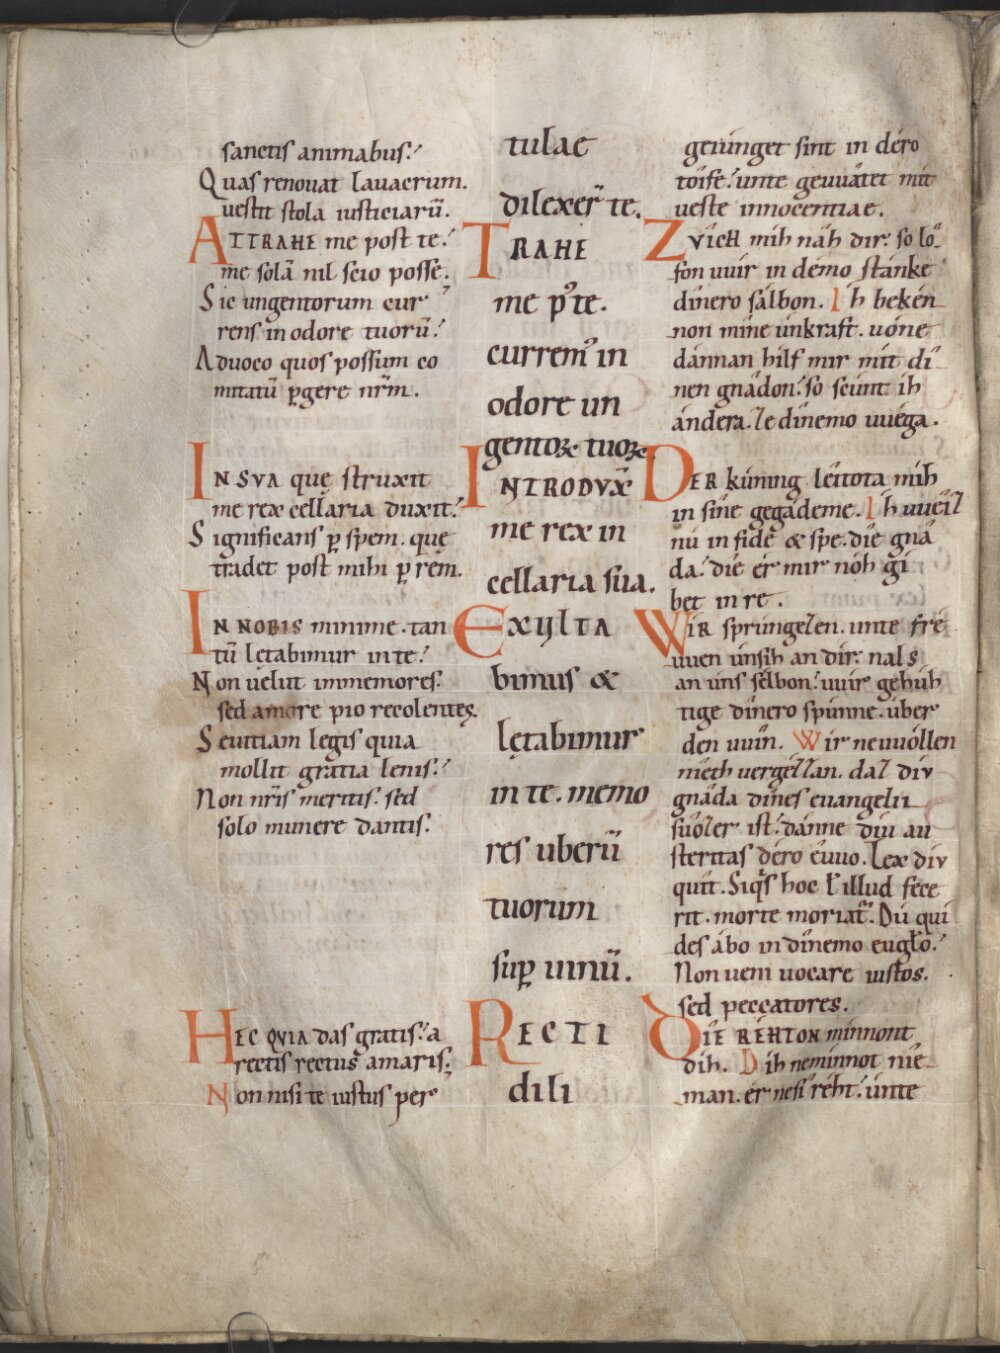 sanctis animabus.
Quas renouat lauacrum.
uestit stola iusticiarū.
ATTRAHE me post te.
me solā nil scio posse.
Sic ungentorum cur
rens in odore tuorū.
Aduoco quos possum co
mitatū ꝑgere nr̄m.
IN SVA quę struxit
me rex cellaria duxit.
Significans ꝑ spem. quę
tradet post mihi ꝑ rem.
IN NOBIS minime. tan
tū lętabimur in te.
Non uelut immemores.
sed amore pio recolentes.
Seuitiam legis quia
mollit gratia lenis.
Non nr̄is meritis. sed
solo munere dantis.
HEC QVIA das gratis. a
rectis rectus amaris.
Non nisi te iustus per
tulae
dilexer̄ te.
TRAHE
me p᷒ te.
currem᷒ in
odore un
gentoꝝ tuoꝝ
INTRODVX̄
me rex in
cellaria sua.
EXVLTA
bimus &
lętabimur
in te. memo
res uberū
tuorum
suꝑ uinū.
RECTI
dili
geiúnget sint in déro
tôife. unte geuuâtet mit
ueste innocentiae.
ZVIEH mih nâh dir. so lô
fon uuir in démo stanke
dînero sálbon. Ih bekén
non mine únkraft. uóne
dánnan hilf mir mit dî
nen gnâdon. so scúnt ih
ándera. ze dinemo uuéga.
DER kúning léitota mih
in sîne gegádeme. Ih uuéiz
nú in fide & spe. die gnâ
da. die ér mir nóh gi
bet in re.
WIR sprúngezen. unte fré
uuen únsih an dir. nals
an úns sélbon. uuir gehúh
tige dînero spúnne. úber
den uuîn. Wir neuuóllen
nieth uergézzan. daz div
gnâda dînes euangelii
suôzer ist. dánne diu au
steritas déro êuuo. Lex div
quit. Siq̇s hoc ł illud fece
rit. morte moriat᷑. Dú qui
des ábo in dînemo eugło.
Non ueni uocare iustos.
sed peccatores.
DIE RÉHTON minnont
dih. Dih neminnot nie
man. ér nesi réht. únte